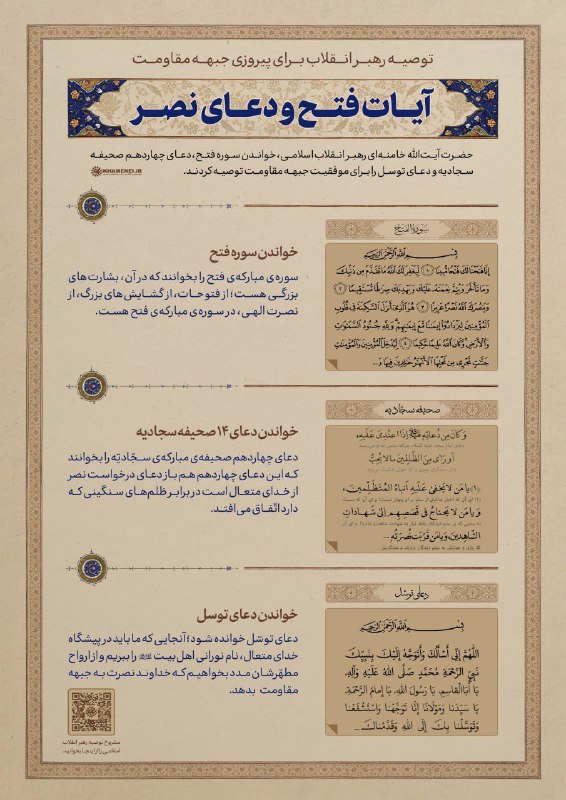 توصیه رهبر انقلاب برای پیروزی جبهه مقاومت
آیات فتح و دعای نصر
حضرت آیت‌الله خامنه‌ای رهبر انقلاب اسلامی، خواندن سوره فتح، دعای چهاردهم صحیفه
سجادیه و دعای توسل را برای موفقیت جبهه مقاومت توصیه کردند.
KHAMENEI.IR
سورة الفتح
بِسْمِ اللَّهِ الرَّحْمَٰنِ الرَّحِيمِ
إِنَّا فَتَحْنَا لَكَ فَتْحًا مُبِينًا ﴿١﴾ لِيَغْفِرَ لَكَ اللَّهُ مَا تَقَدَّمَ مِنْ ذَنْبِكَ
وَمَا تَأَخَّرَ وَيُتِمَّ نِعْمَتَهُ عَلَيْكَ وَيَهْدِيَكَ صِرَاطًا مُسْتَقِيمًا ﴿٢﴾
وَيَنْصُرَكَ اللَّهُ نَصْرًا عَزِيزًا ﴿٣﴾ هُوَ الَّذِي أَنْزَلَ السَّكِينَةَ فِي قُلُوبِ
الْمُؤْمِنِينَ لِيَزْدَادُوا إِيمَانًا مَعَ إِيمَانِهِمْ وَلِلَّهِ جُنُودُ السَّمَاوَاتِ
وَالْأَرْضِ وَكَانَ اللَّهُ عَلِيمًا حَكِيمًا ﴿٤﴾ لِيُدْخِلَ الْمُؤْمِنِينَ وَالْمُؤْمِنَاتِ
جَنَّاتٍ تَجْرِي مِنْ تَحْتِهَا الْأَنْهَارُ خَالِدِينَ فِيهَا وَ...
خواندن سوره فتح
سوره‌ی مبارکه‌ی فتح را بخوانند که در آن، بشارت‌های
بزرگی هست؛ از فتوحات، از گشایش‌های بزرگ، از
نصرت الهی، در سوره‌ی مبارکه‌ی فتح هست.
صحیفه سجادیه
وَ كَانَ مِنْ دُعَائِهِ إِذَا اعْتُدِيَ عَلَيْهِ،
أَوْ رَأَى مِنَ الظَّالِمِينَ مَا لَا يُحِبُّ
﴿١﴾ يَا مَنْ لَا يَخْفَى عَلَيْهِ أَنْبَاءُ الْمُتَظَلِّمِينَ،
وَ يَا مَنْ لَا يَحْتَاجُ فِي قَصَصِهِمْ إِلَى شَهَادَاتِ
الشَّاهِدِينَ، وَ يَا مَنْ قَرُبَتْ نُصْرَتُهُ ...
خواندن دعای ۱۴ صحیفه سجادیه
دعای چهاردهم صحیفه‌ی مبارکه‌ی سجّادیّه را بخوانند
که این دعای چهاردهم هم باز دعای درخواست نصر
از خدای متعال است در برابر ظلم‌های سنگینی که
دارد اتّفاق می‌افتد.
دعای توسل
بِسْمِ اللَّهِ الرَّحْمَٰنِ الرَّحِيمِ
اللَّهُمَّ إِنِّي أَسْأَلُكَ وَأَتَوَجَّهُ إِلَيْكَ بِنَبِيِّكَ
نَبِيِّ الرَّحْمَةِ مُحَمَّدٍ صَلَّى اللَّهُ عَلَيْهِ وَآلِهِ،
يَا أَبَا الْقَاسِمِ، يَا رَسُولَ اللَّهِ، يَا إِمَامَ الرَّحْمَةِ،
يَا سَيِّدَنَا وَمَوْلَانَا إِنَّا تَوَجَّهْنَا وَاسْتَشْفَعْنَا
وَتَوَسَّلْنَا بِكَ إِلَى اللَّهِ وَقَدَّمْنَاكَ ...
خواندن دعای توسل
دعای توسّل خوانده شود؛ آنجایی که ما باید در پیشگاه
خدای متعال، نام نورانی اهل‌بیت را ببریم و از ارواح
مطهّرشان مدد بخواهیم که خداوند نصرت به جبهه
مقاومت بدهد.
مشروح توصیه رهبر انقلاب
اسلامی را از اینجا بخوانید.